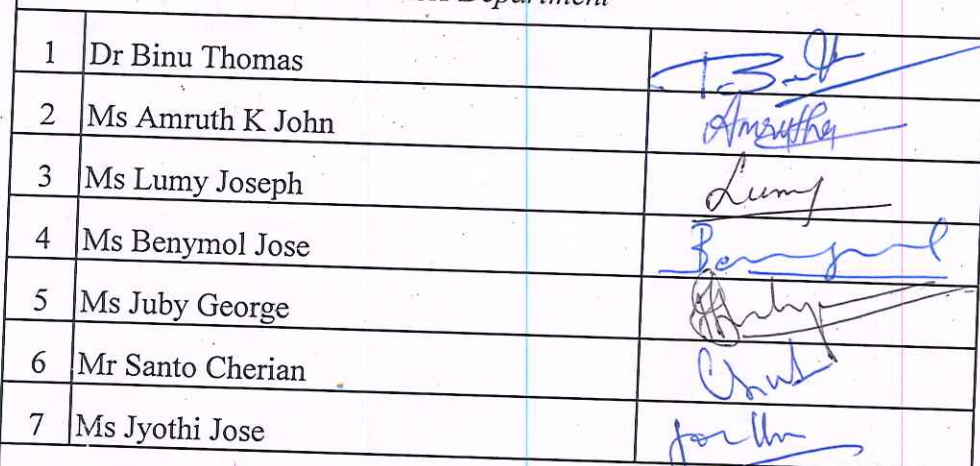 Department
1 Dr Binu Thomas T. Binu
2 Ms Amruth K John Amrutha
3 Ms Lumy Joseph Lumy
4 Ms Benymol Jose Benymol
5 Ms Juby George
6 Mr Santo Cherian
7 Ms Jyothi Jose